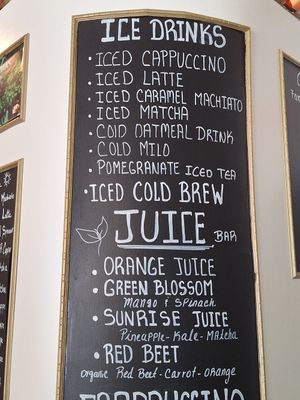 ICE DRINKS
• ICED CAPPUCCINO
ICED LATTE
• ICED CARAMEL MACHIATO
• ICED MATCHA
• COLD OATMEAL DRINK
• COLD MILO
• POMEGRANATE ICED TEA
• ICED COLD BREW
JUICE BAR
• ORANGE JUICE
• GREEN BLOSSOM
Mango & Spinach
• SUNRISE JUICE
Pineapple-Kale-Matcha
• RED BEET
Organic Red Beet-Carrot-Orange
FRAPPUCCINO